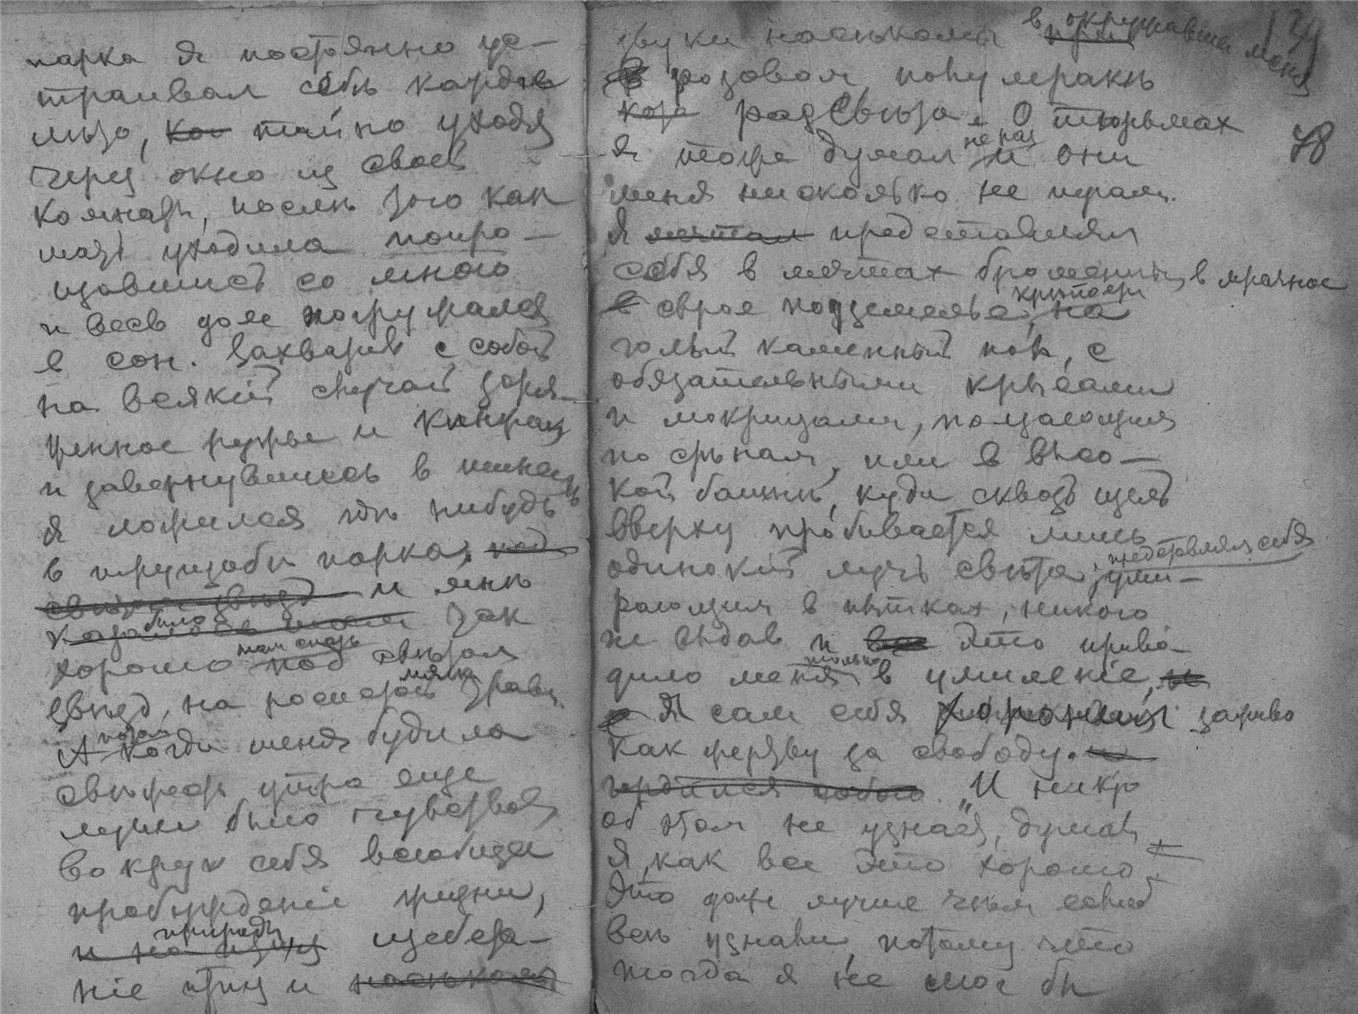 парка я постоянно ус-
траивал себѣ
тайно уходя
через окно из своей
комнаты, послѣ того как
мать уходила попро-
щавшись со мною
и весь дом погружался
в сон. Захватив с собой
на всякій случай заря-
женное ружье и кинжал
и завернувшись в шинель
я ложился гдѣ нибудь
в трущобѣ парка, под
свѣтом звѣзд и мнѣ
казалось было так
хорошо там спать под свѣтом
звѣзд, на росистой мягкой травѣ.
А потом когда меня будила
свѣжесть утра еще
лучше было чувствовать
вокруг себя всеобщее
пробужденіе жизни,
природы щебета-
ніе птиц и насѣкомых
звуки насѣкомых в окружавшем меня
в розовом полумракѣ
разсвѣта. О тюрьмах
78
я тоже думал не раз и они
меня нисколько не пугали.
Я мечтал представлял
себя в мечтах брошенным в мрачное
в сырое подземелье крѣпости, на
голый каменный пол, с
обязательными крысами
и мокрицами, ползающими
по стѣнам, или в высо-
кой башнѣ, куда сквозь щель
вверху пробивается лишь
одинокій луч свѣта, представлял себя уми-
рающим в пытках, никого
не выдав и все это приво-
дило меня только в умиленіе, и
Я сам себя хоронил заживо
как жертву за свободу. и
гордился собою. И никто
об этом не узнает, думал
я, как все это хорошо
Это даже лучше чѣм если б
всѣ узнали потому что
тогда я не смог бы